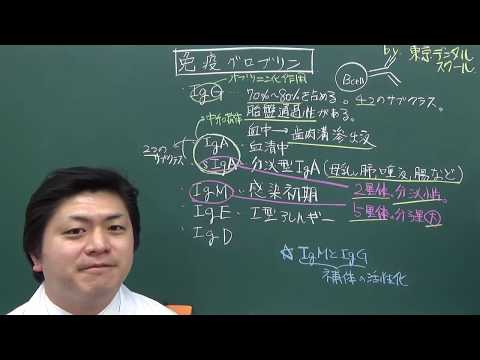 免疫グロブリン
by 東京デンタルスクール
オプソニン化作用
・IgG
70%〜80%を占める。4つのサブクラス。
胎盤通過性がある。
中和抗体
血中→歯肉溝滲出液
2つのサブクラス
IgA 血清中
sIgA 分泌型IgA(母乳,唾液,腸など)
2量体、分泌小片。
・IgM 感染初期
5量体、分子量大
・IgE I型アレルギー
・IgD
☆IgMとIgG
補体の活性化
Bcell